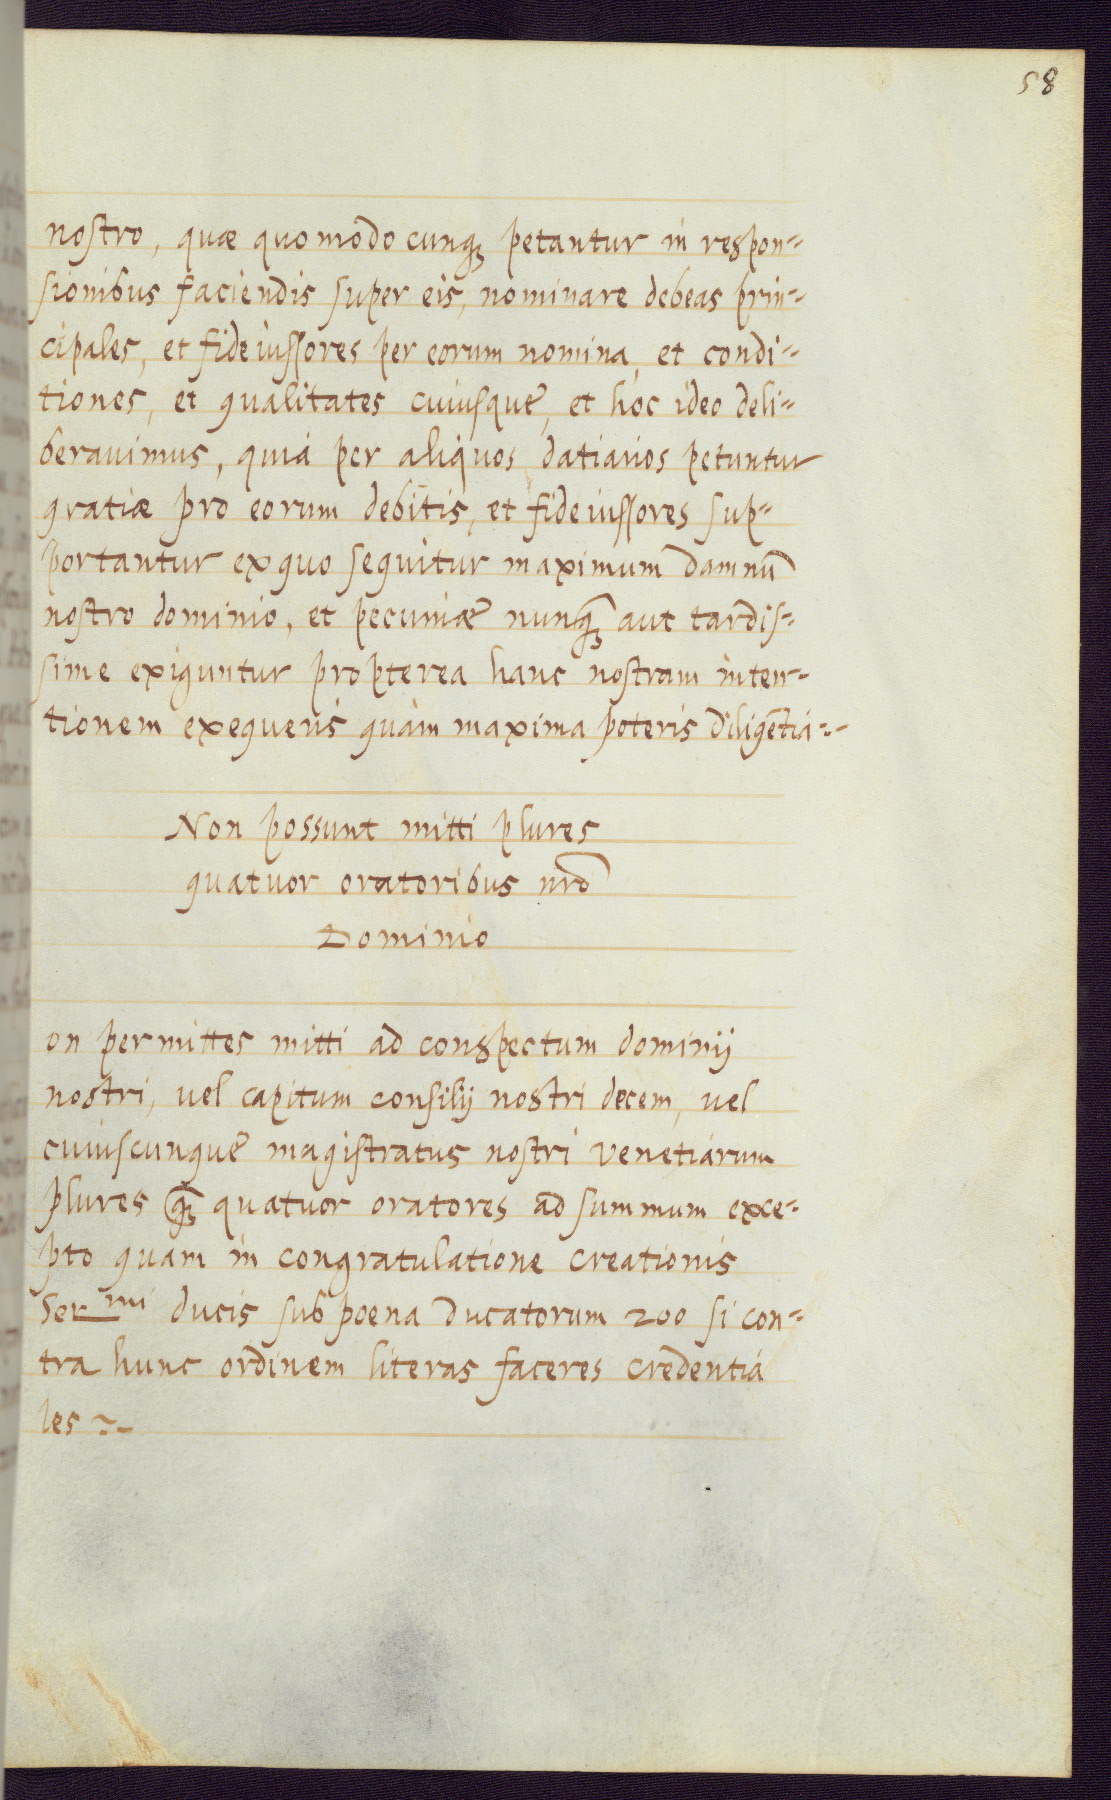 58
nostro, quæ quomodocunqꝫ petantur in respon=
sionibus faciendis super eis, nominare debeas prin=
cipales, et fideiussores per eorum nomina, et condi=
tiones, et qualitates cuiusque, et hoc ideo deli=
beravimus, quia per aliquos datiarios petuntur
gratiæ pro eorum debitis, et fideiussores sup=
portantur ex quo sequitur maximum damnū
nostro dominio, et pecuniæ nunq̄ꝫ aut tardis=
sime exiguntur propterea hanc nostram inten=
tionem exequeris quàm maxima poteris diligētia
Non possunt mitti plures
quatuor oratoribus nrō
Dominio
on permittes mitti ad conspectum dominij
nostri, vel capitum consilij nostri decem, vel
cuiuscunque magistratus nostri venetiarum
plures q̄ꝫ quatuor oratores ad summum exce=
pto quam in congratulatione creationis
Ser.mi ducis sub poena ducatorum 200 si con=
tra hunc ordinem literas faceres credentia
les